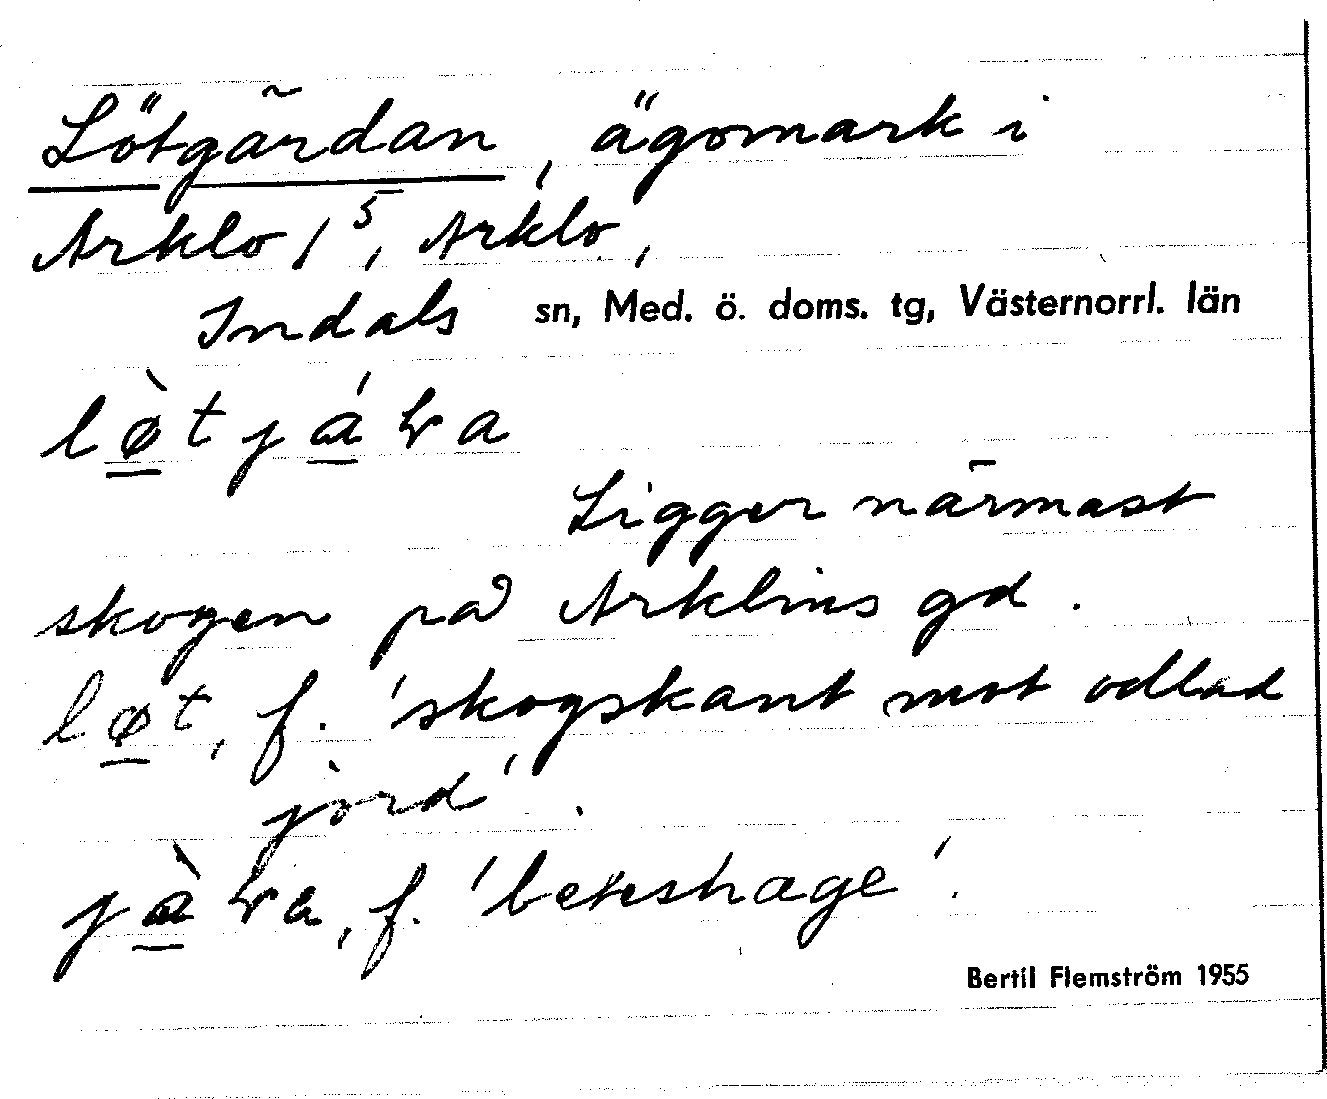 Lötgärdan, ägomark i
Arklo 1⁵, Arklo,
Indals sn, Med. ö. doms. tg, Västernorrl. län
lø̀tjáɽa
Ligger närmast
skogen på Arklins gd.
løt, f. 'skogskant mot odlad
jord'.
jàɽa, f. 'beteshage'.
Bertil Flemström 1955